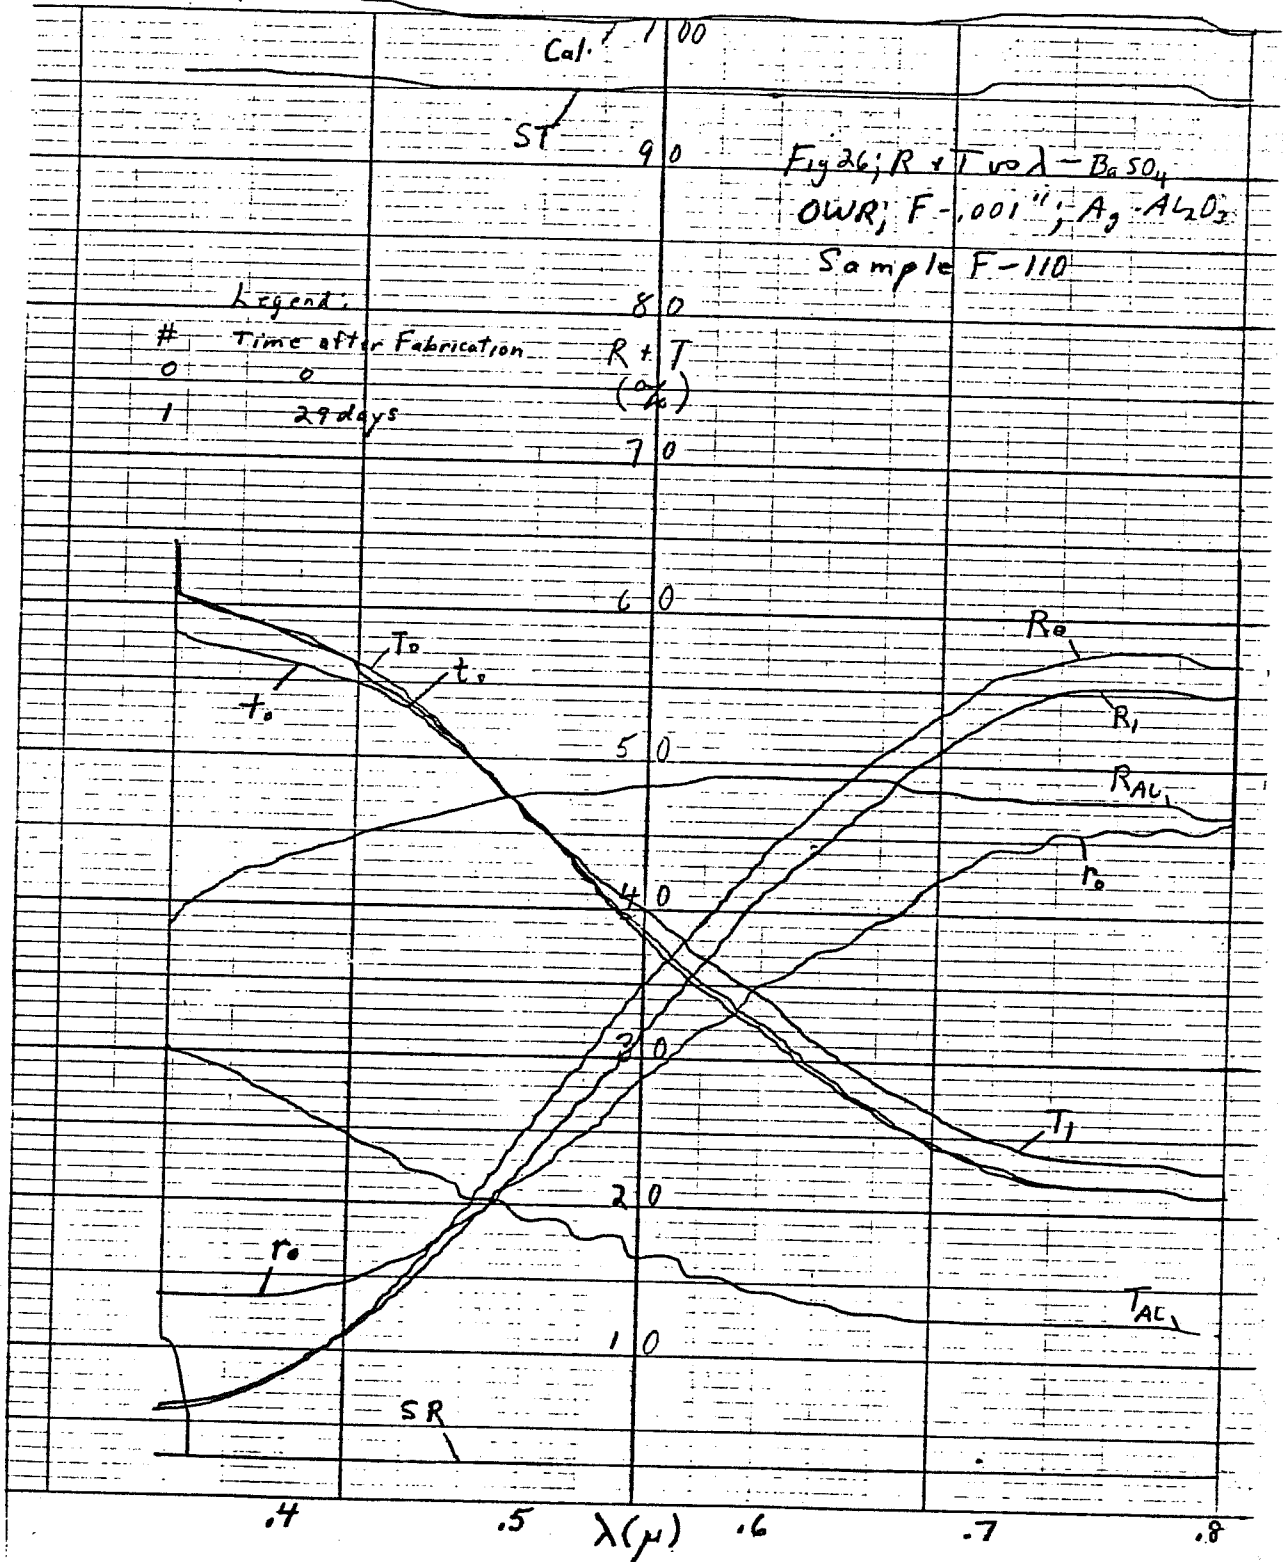 Cal.
100
ST
90
Fig 26; R + T vs λ - BaSO4
OWR; F-.001"; Ag-AL2O3
Sample F-110
80
Legend:
# Time after Fabrication
0 0
1 29 days
R + T
(%)
70
60
R0
T0
t0
t0
R1
50
RAL1
r0
40
30
T1
20
r0
TAL1
10
SR
.4 .5 .6 .7 .8
λ(μ)